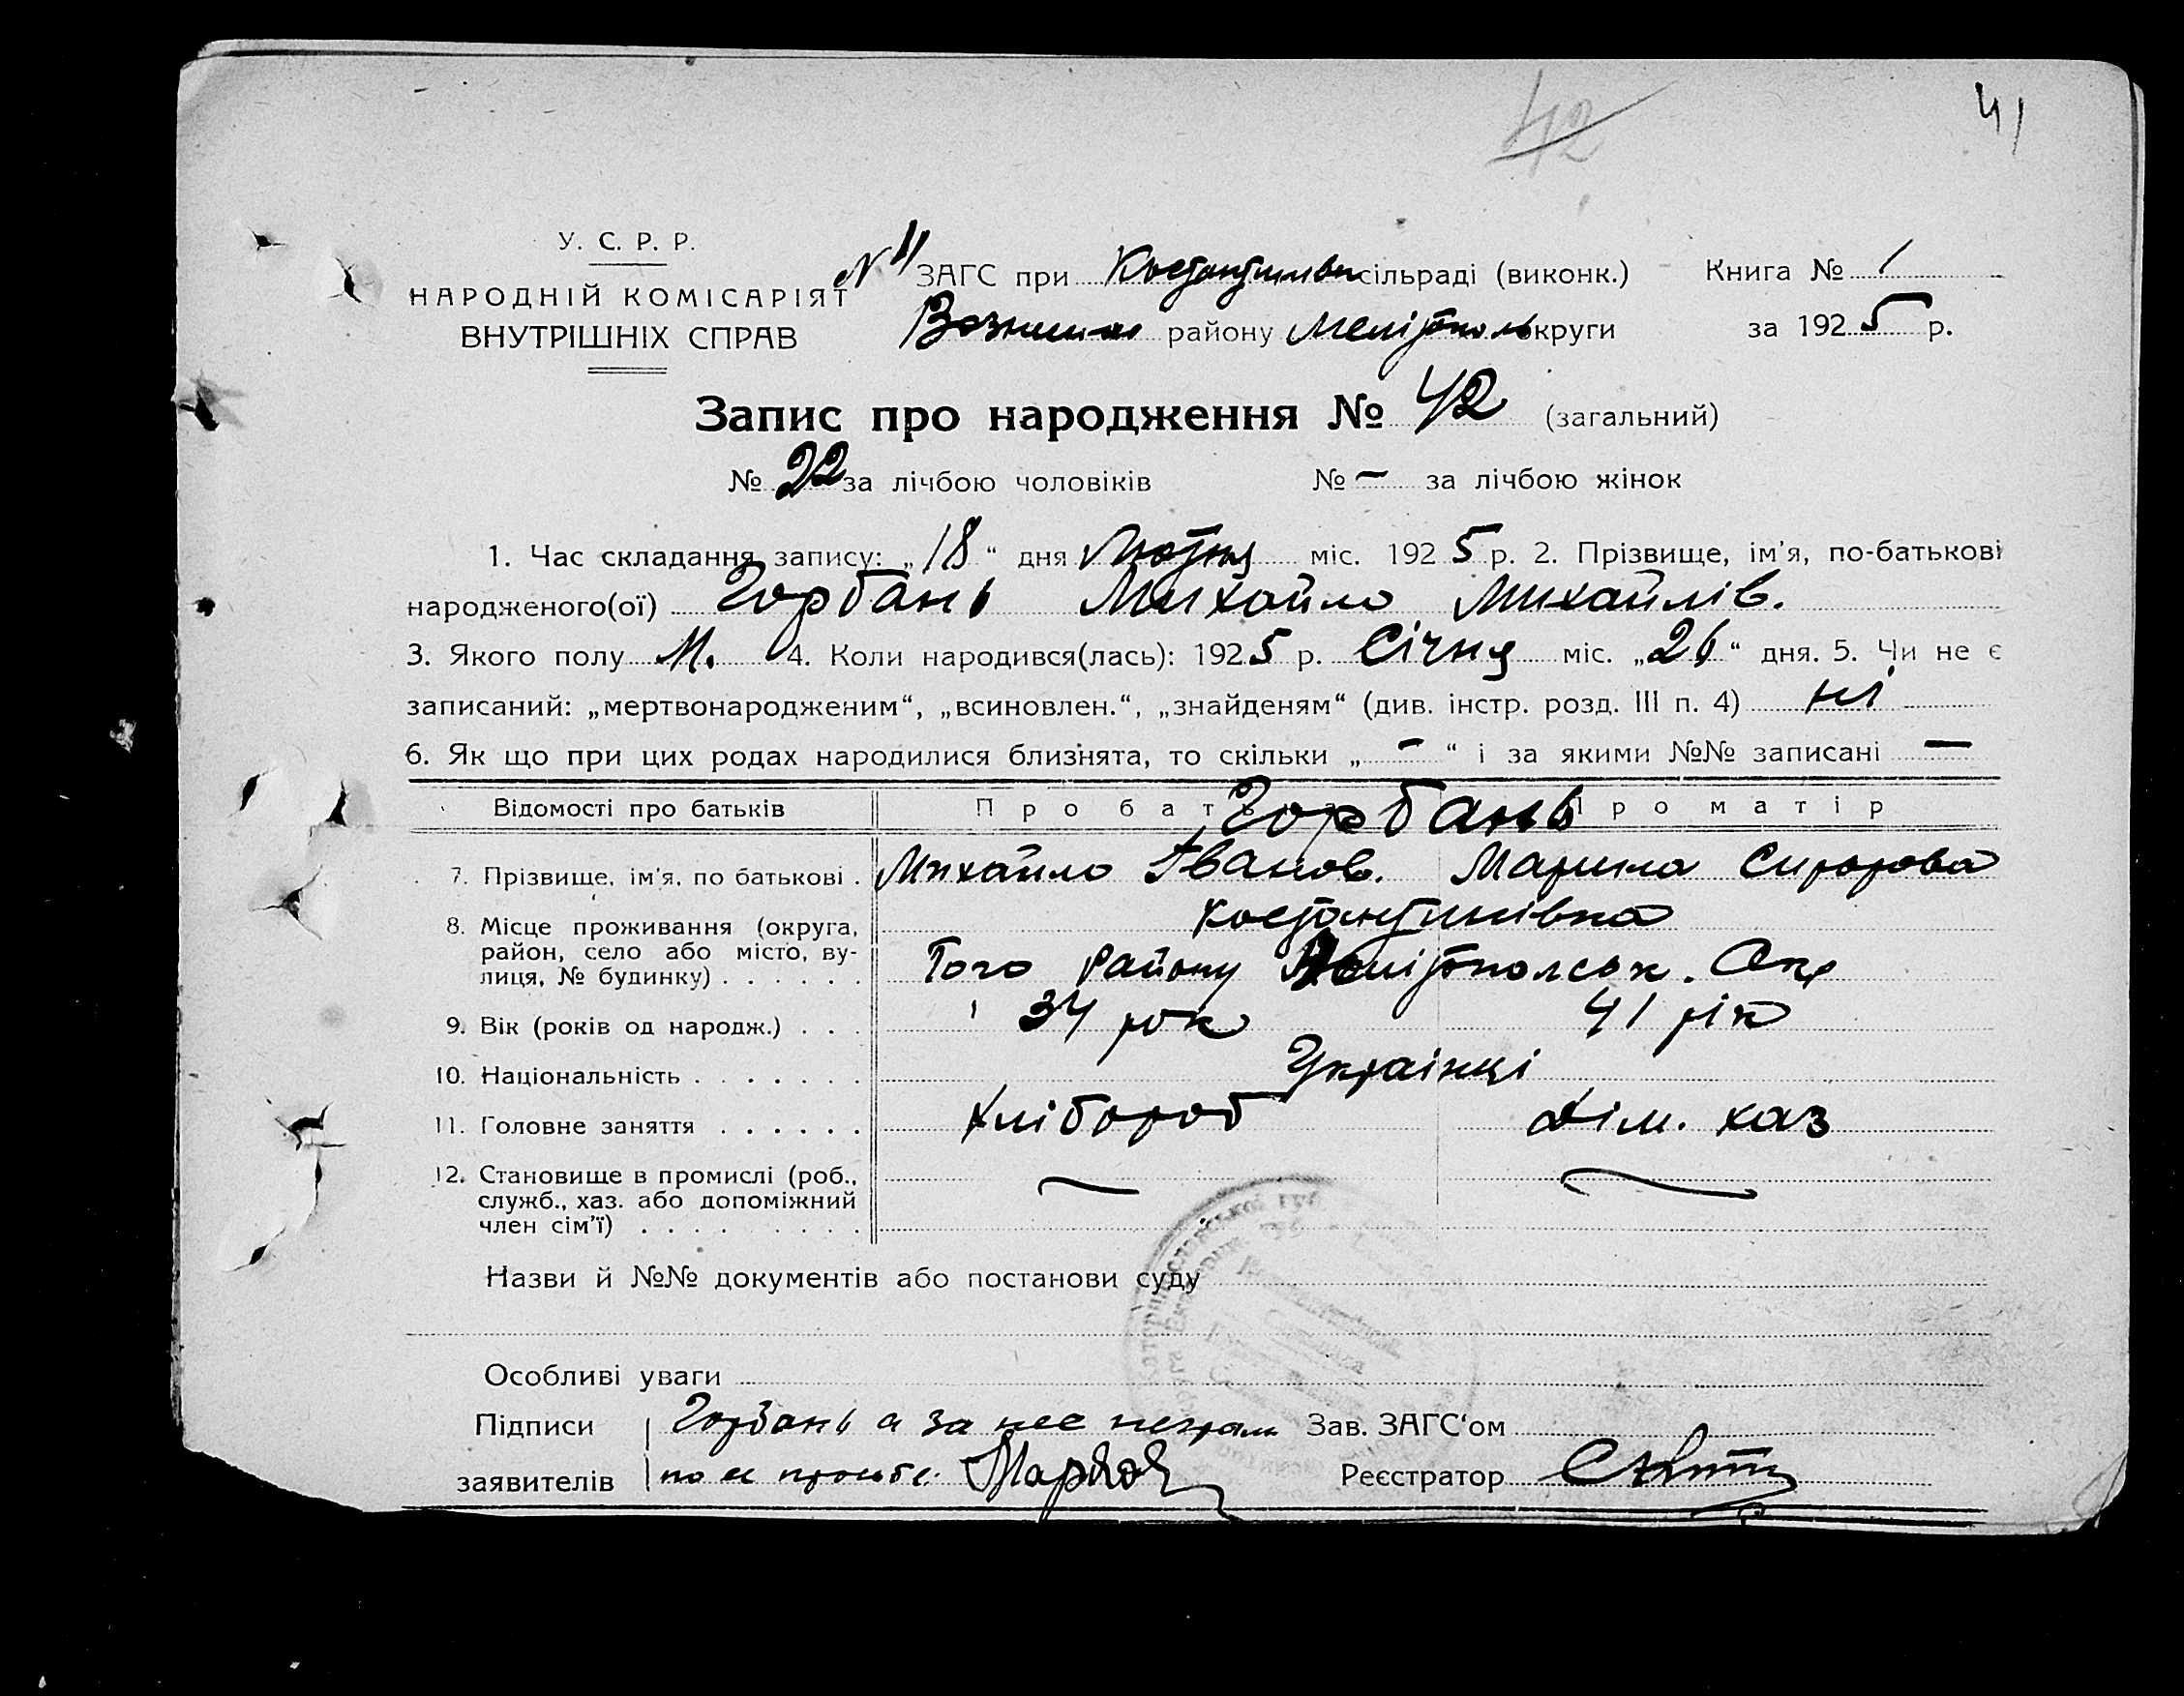 42
41
У. С. Р. Р.
НАРОДНІЙ КОМІСАРІЯТ
ВНУТРІШНІХ СПРАВ
N 11 ЗАГС при Костантинівськ сільраді (виконк.) Книга № 1
району Мелітополь округи за 1925 р.
Запис про народження № 42 (загальний)
№ 22 за лічбою чоловіків № — за лічбою жінок
1. Час складання запису: „18“ дня Лютня міс. 1925 р. 2. Прізвище, ім'я, по-батькові
народженого(ої) Горбань Михайло Михайлів.
3. Якого полу М. 4. Коли народився(лась): 1925 р. Січня міс. „26“ дня. 5. Чи не є
записаний: „мертвонародженим“, „всиновлен.“, „знайденям“ (див. інстр. розд. III п. 4) ні
6. Як що при цих родах народилися близнята, то скільки „—“ і за якими №№ записані —
Відомості про батьків Про батька Про матір
Горбань
7. Прізвище, ім'я, по батькові . Михайло Іванов. Марина Сидорова
8. Місце проживання (округа, Костантинівка
район, село або місто, ву-
лиця, № будинку) . . . . . . Того району Мелітопольськ. Окр
9. Вік (років од народж.) . . . 34 рок 41 рік
10. Національність . . . . . . . Українці
11. Головне заняття . . . . . . Хлібороб Дім. хаз
12. Становище в промислі (роб.,
служб., хаз. або допоміжний
член сім'ї) . . . . . . . . .
Назви й №№ документів або постанови суду
Особливі уваги
Підписи Горбань а за нее неграм Зав. ЗАГС'ом
заявителів по ее просьбе. Реєстратор